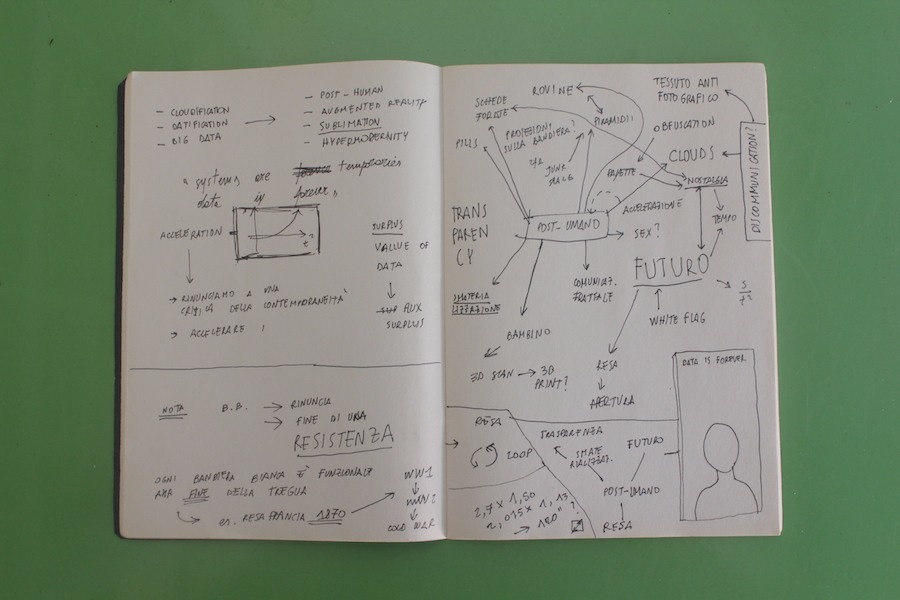 — CLOUDIFICATION
— DATIFICATION
— BIG DATA
— POST-HUMAN
— AUGMENTED REALITY
— SUBLIMATION
— HYPERMODERNITY
" systems are temporaries
data is forever "
ACCELERATION
t
SURPLUS
VALUE OF
DATA
FLUX
SURPLUS
→ RINUNCIAMO A UNA
CRITICA DELLA CONTEMPORANEITÀ
→ ACCELERARE !
NOTA
B.B. → RINUNCIA
→ FINE DI UNA
RESISTENZA
OGNI BANDIERA BIANCA È FUNZIONALE
ALLA FINE DELLA TREGUA
es. RESA FRANCIA 1870
WW1
WW2
COLD WAR
SCHEDE
FORATE
ROVINE
PIRAMIDI
TESSUTO ANTI
FOTOGRAFICO
PILLS
PROIEZIONI
SULLA BANDIERA?
JUNK
SPACE
OBFUSCATION
CLOUDS
NOSTALGIA
DISCOMMUNICATION?
TRANS
PAREN
CY
POST-UMANO
ACCELERAZIONE
TEMPO
SEX?
FUTURO
S
t²
SMATERIA
LIZZAZIONE
COMUNICAZ.
FRATTALE
WHITE FLAG
BAMBINO
3D SCAN → 3D
PRINT?
RESA
APERTURA
DATA IS FOREVER
RESA
LOOP
TRASPARENZA
SMATE
RIALIZZAZ.
FUTURO
POST-UMANO
RESA
2,7 x 1,50
→ 180° ?